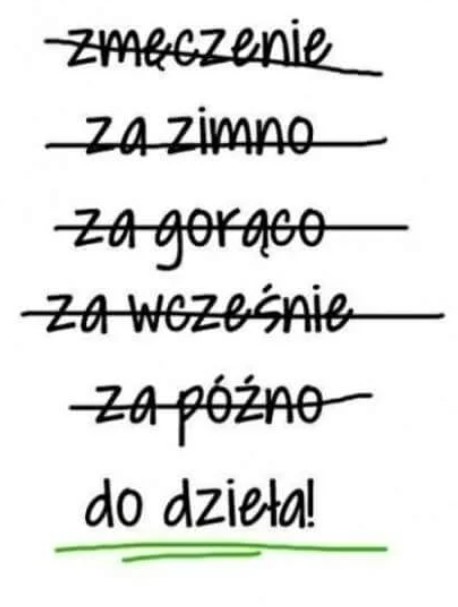 zmęczenie
za zimno
za gorąco
za wcześnie
za późno
do dzieła!